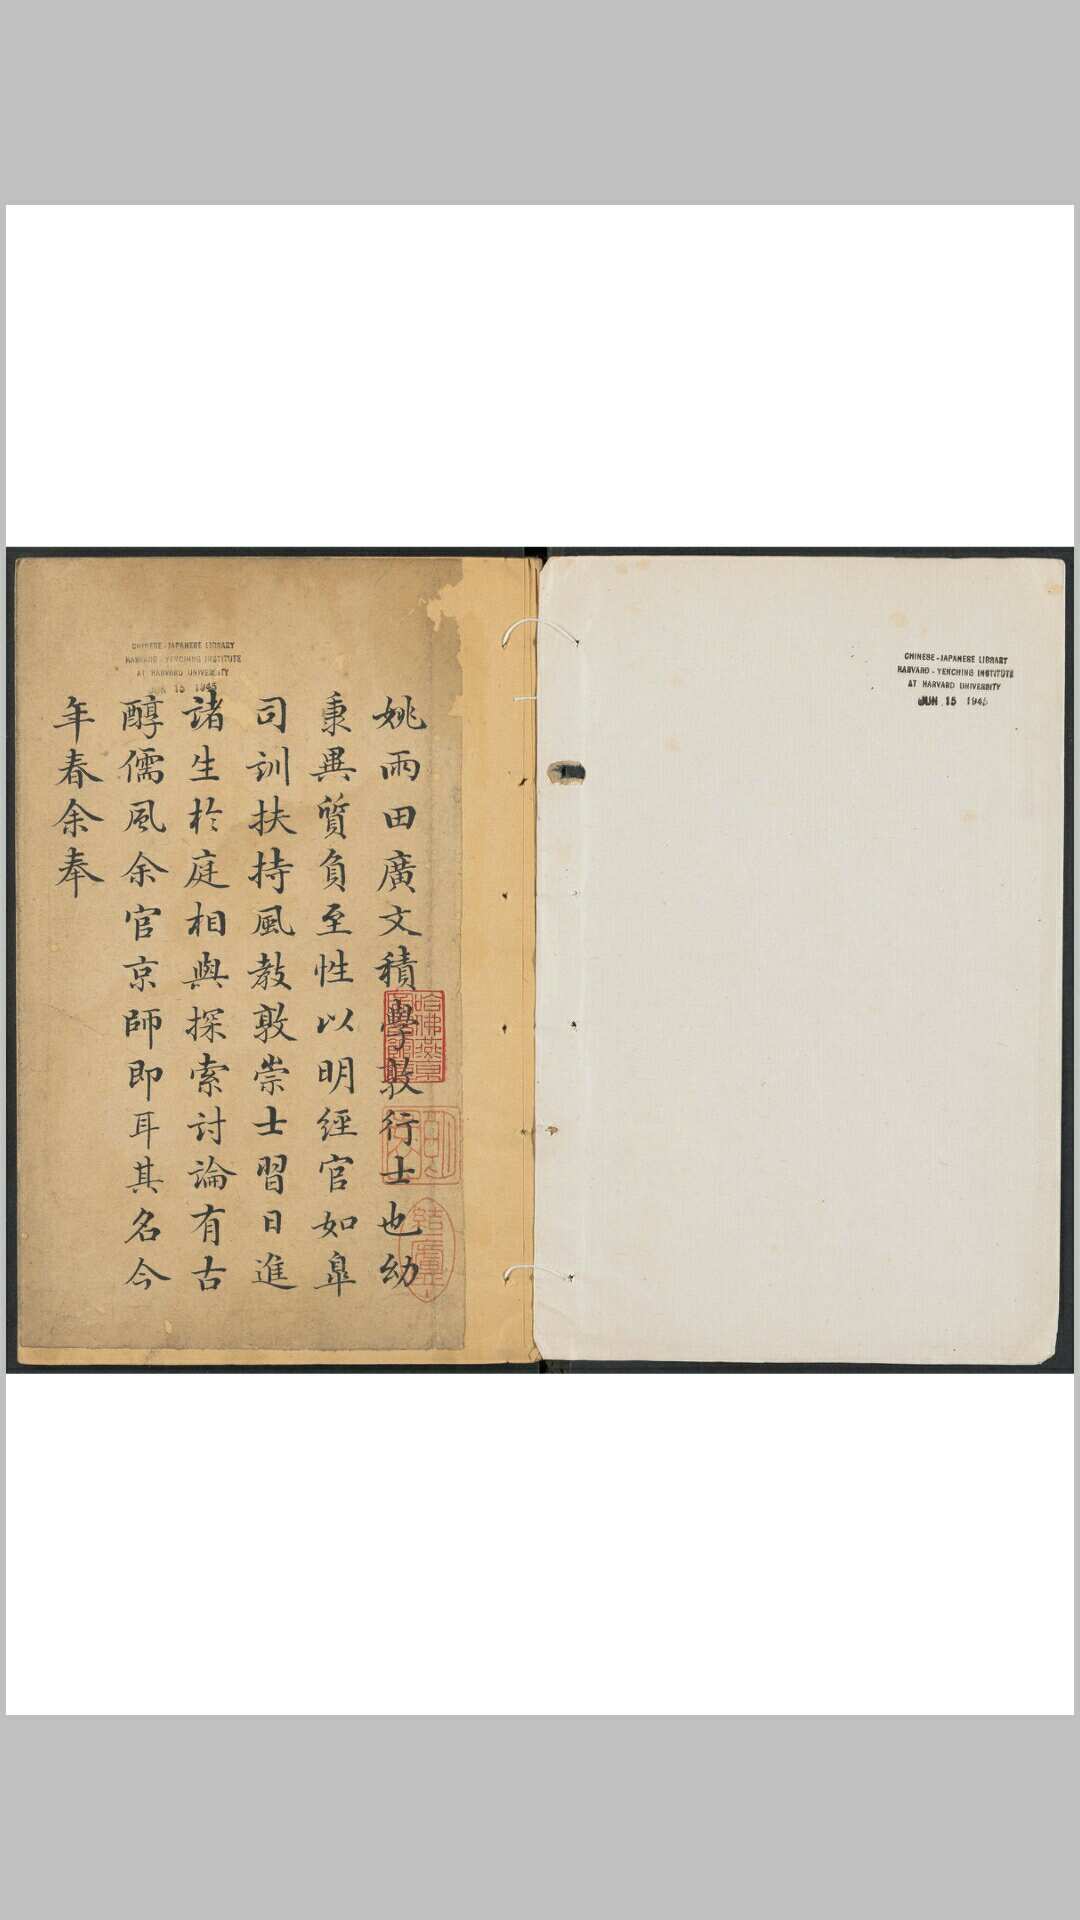 CHINESE-JAPANESE LIBRARY
HARVARD-YENCHING INSTITUTE
AT HARVARD UNIVERSITY
JUN 15 1945
姚雨田廣文積學敦行士也幼
秉異質負至性以明經官如臯
司訓扶持風教敦崇士習日進
諸生於庭相與探索討論有古
醇儒風余官京師即耳其名今
年春余奉
CHINESE-JAPANESE LIBRARY
HARVARD-YENCHING INSTITUTE
AT HARVARD UNIVERSITY
JUN 15 1945
哈佛燕京